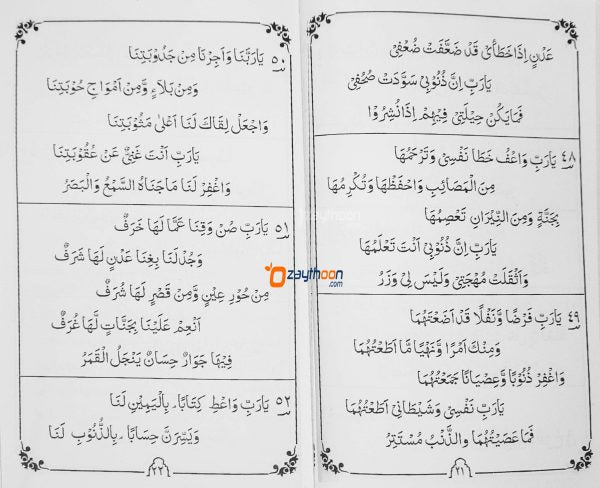 عَدْنٍ اِذَا خَطَائِىْ قَدْ ضَعَّفَتْ ضُعْفِىْ
يَارَبِّ اِنَّ ذُنُوْبِىْ سَوَّدَتْ صُحُفِىْ
فَمَا يَكُنْ حِيْلَتِىْ فِيْهِمْ اِذَا نُشِرُوْا
٤٨ يَارَبِّ وَاعْفُ خَطَا نَفْسِىْ وَتَرْحَمُهَا
مِنَ الْمَصَائِبِ وَاحْفَظْهَا وَتُكْرِمُهَا
بِجَنَّةٍ وَمِنَ النِّيْرَانِ تَعْصِمُهَا
يَارَبِّ اِنَّ ذُنُوْبِىْ اَنْتَ تَعْلَمُهَا
وَاَثْقَلَتْ مُهْجَتِىْ وَلَيْسَ لِىْ وَزَرُ
٤٩ يَارَبِّ فَرْضًا وَّنَفْلًا قَدْ اَضَعْتُهُمَا
وَمِنْكَ اَمْرًا وَّنَهْيًا مَّا اَطَعْتُهُمَا
وَاغْفِرْ ذُنُوْبًا وَّعِصْيَانًا جَمَعْتُهُمَا
يَارَبِّ نَفْسِىْ وَشَيْطَانِىْ اَطَعْتُهُمَا
فَمَا عَصَيْتُهُمَا وَالذَّنْبُ مُسْتَتِرُ
٢١
٥٠ يَارَبَّنَا وَاَجِرْنَا مِنْ جَدُوْبَتِنَا
وَمِنْ بَلَاءٍ وَّمِنْ اَمْوَاجِ حُوْبَتِنَا
وَاجْعَلْ لِقَاكَ لَنَا اَعْلٰى مَثُوْبَتِنَا
يَارَبِّ اَنْتَ غَنِىٌّ عَنْ عُقُوْبَتِنَا
وَاغْفِرْ لَنَا مَاجَنَاهُ السَّمْعُ وَالْبَصَرُ
٥١ يَارَبِّ صُنْ وَقِنَا عَمَّا لَهَا خَرَفٌ
وَجُدْ لَنَا بِغِنَا عَدْنٍ لَهَا شَرَفٌ
مِنْ حُوْرِ عِيْنٍ وَّمِنْ قَصْرٍ لَهَا شُرَفٌ
اَنْعِمْ عَلَيْنَا بِجَنَّاتٍ لَّهَا غُرَفٌ
فِيْهَا جَوَارٌ حِسَانٌ يَنْجَلُ الْقَمَرُ
٥٢ يَارَبِّ وَاعْطِ كِتَابًا ۢ بِالْيَمِيْنِ لَنَا
وَيَسِّرَنَّ حِسَابًا ۢ بِالذُّنُوْبِ لَنَا
٢٢
zaythoon
.com